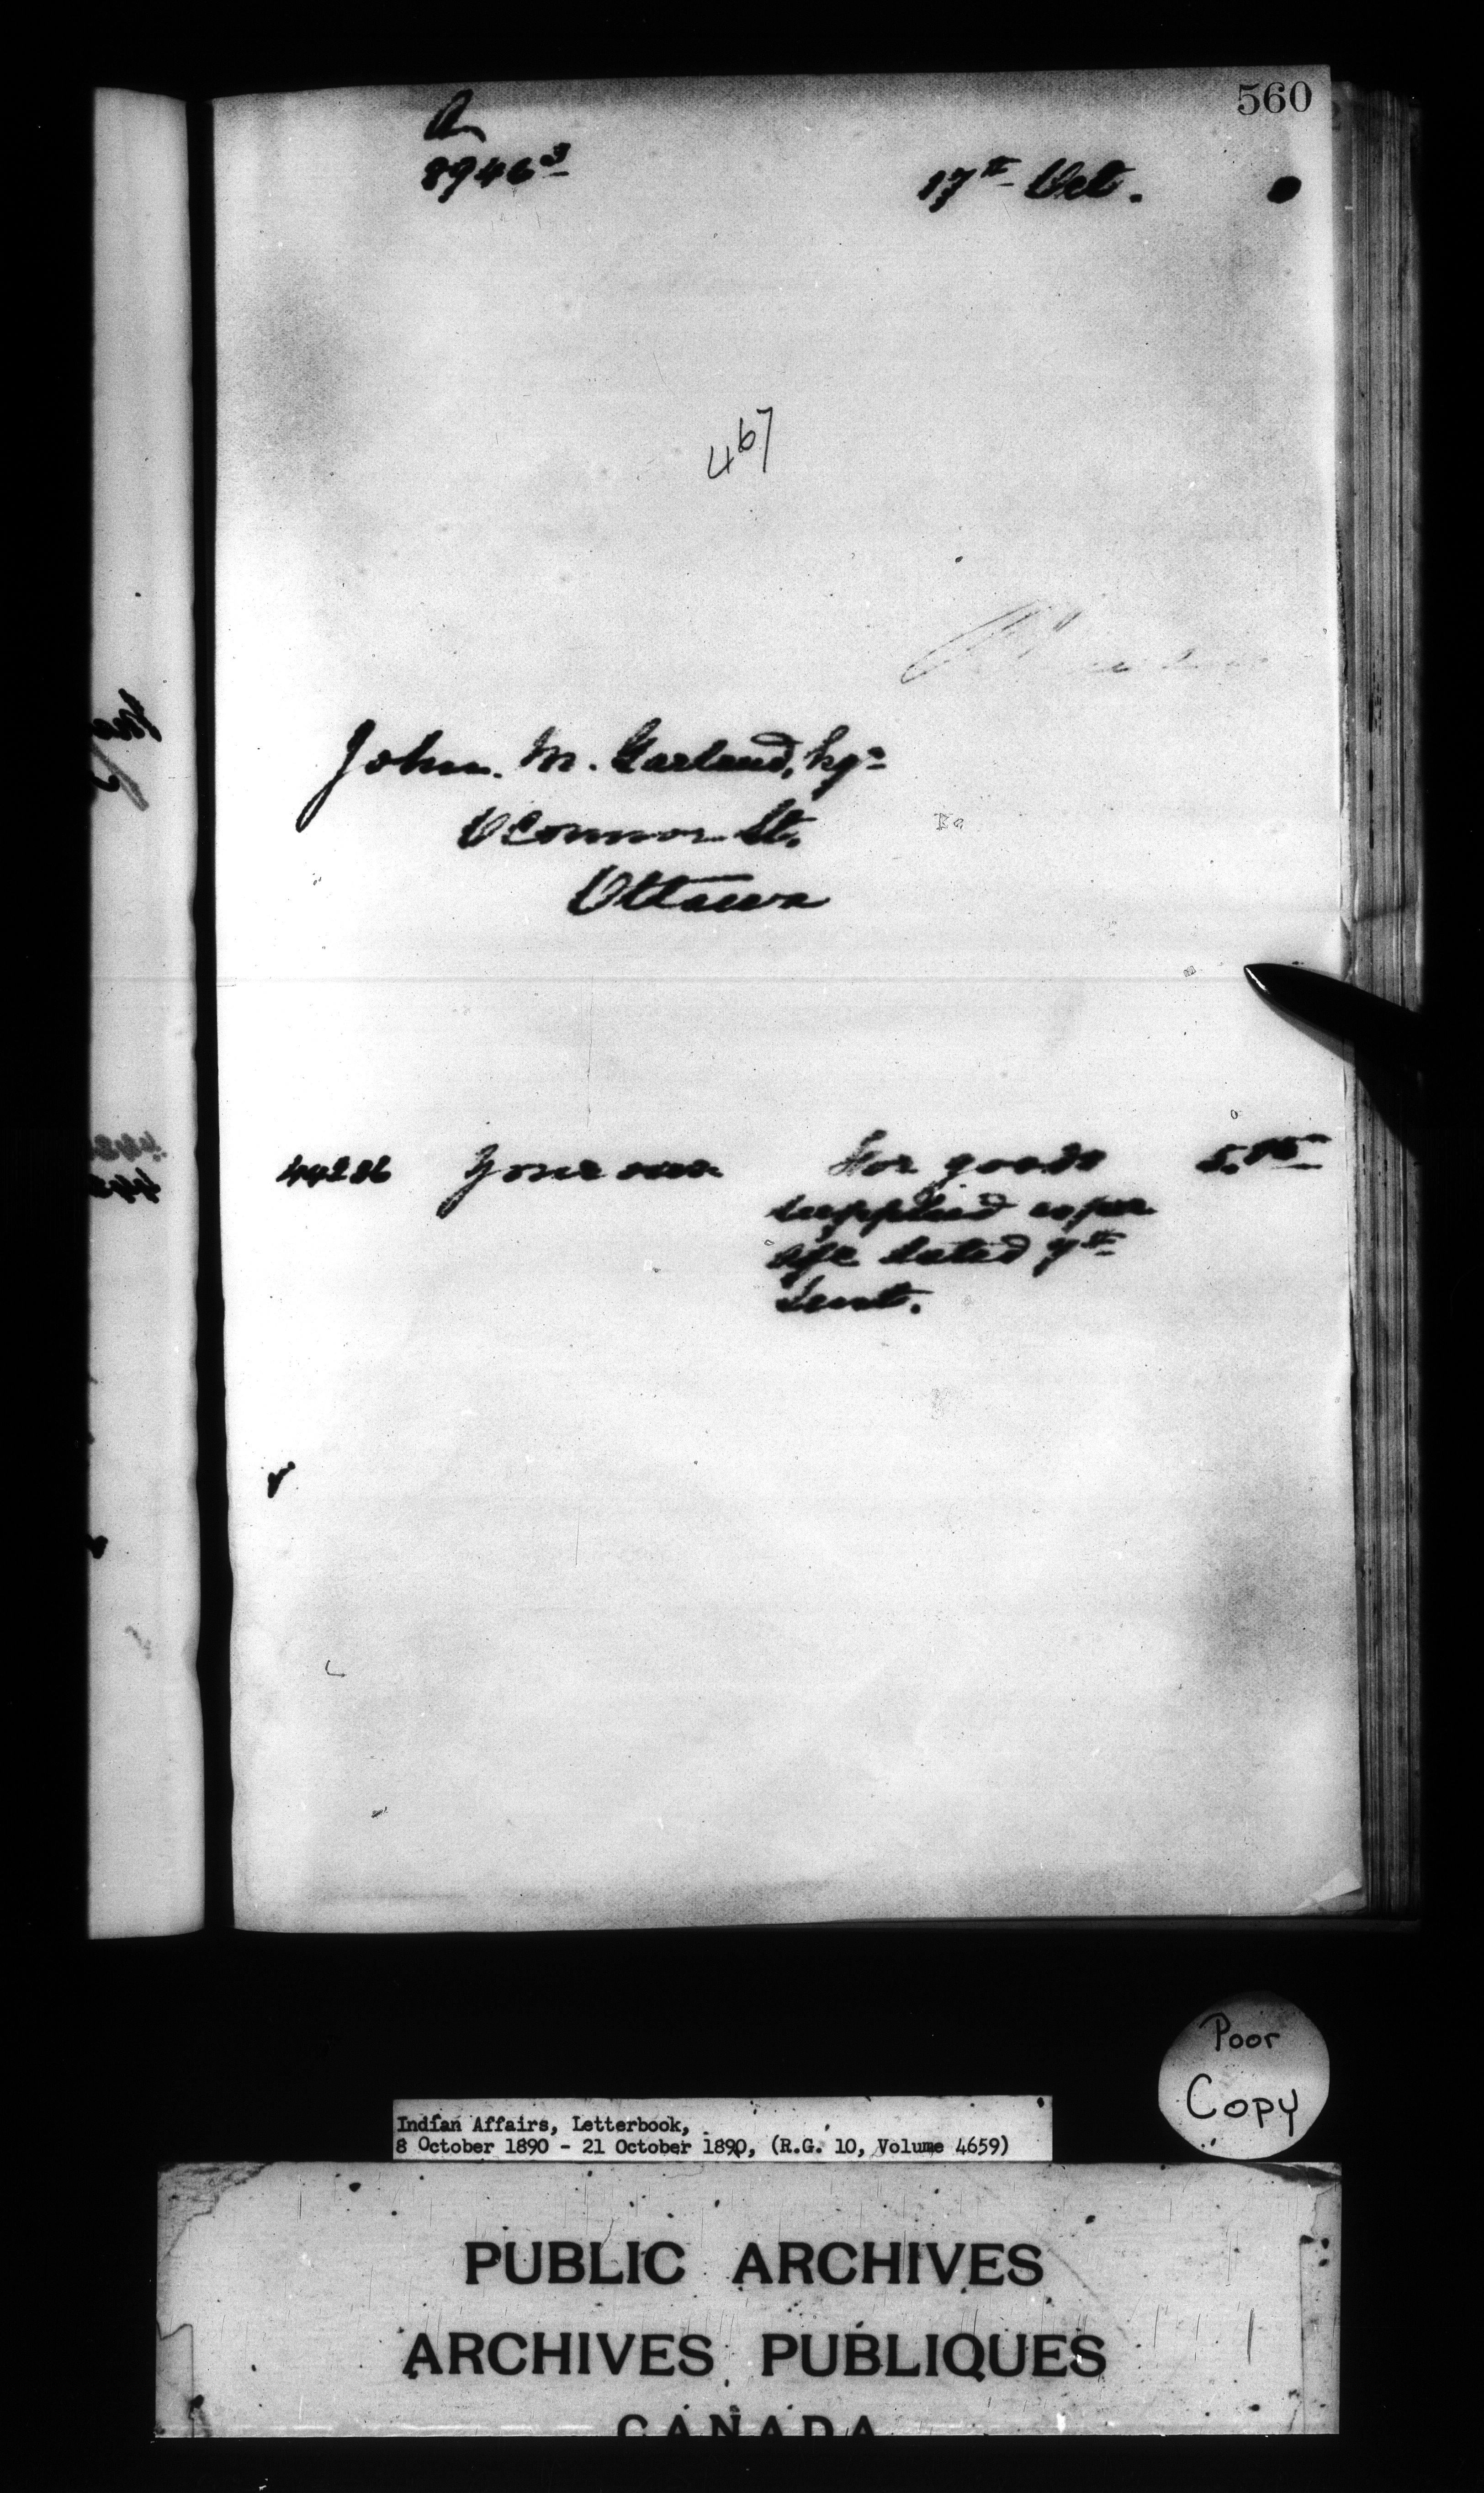 560
A
8946³
17th Oct.
467
John. M. Garland, Esqr
O'Connor St.
Ottawa
44286 Your own For goods 5.85
supplied as per
a/c dated 9th
Sent.
Poor
Copy
Indian Affairs, Letterbook,
8 October 1890 - 21 October 1890, (R.G. 10, Volume 4659)
PUBLIC ARCHIVES
ARCHIVES PUBLIQUES
CANADA